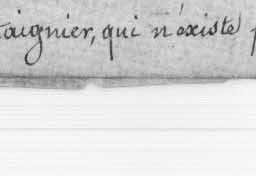 taignier, qui n'existe p